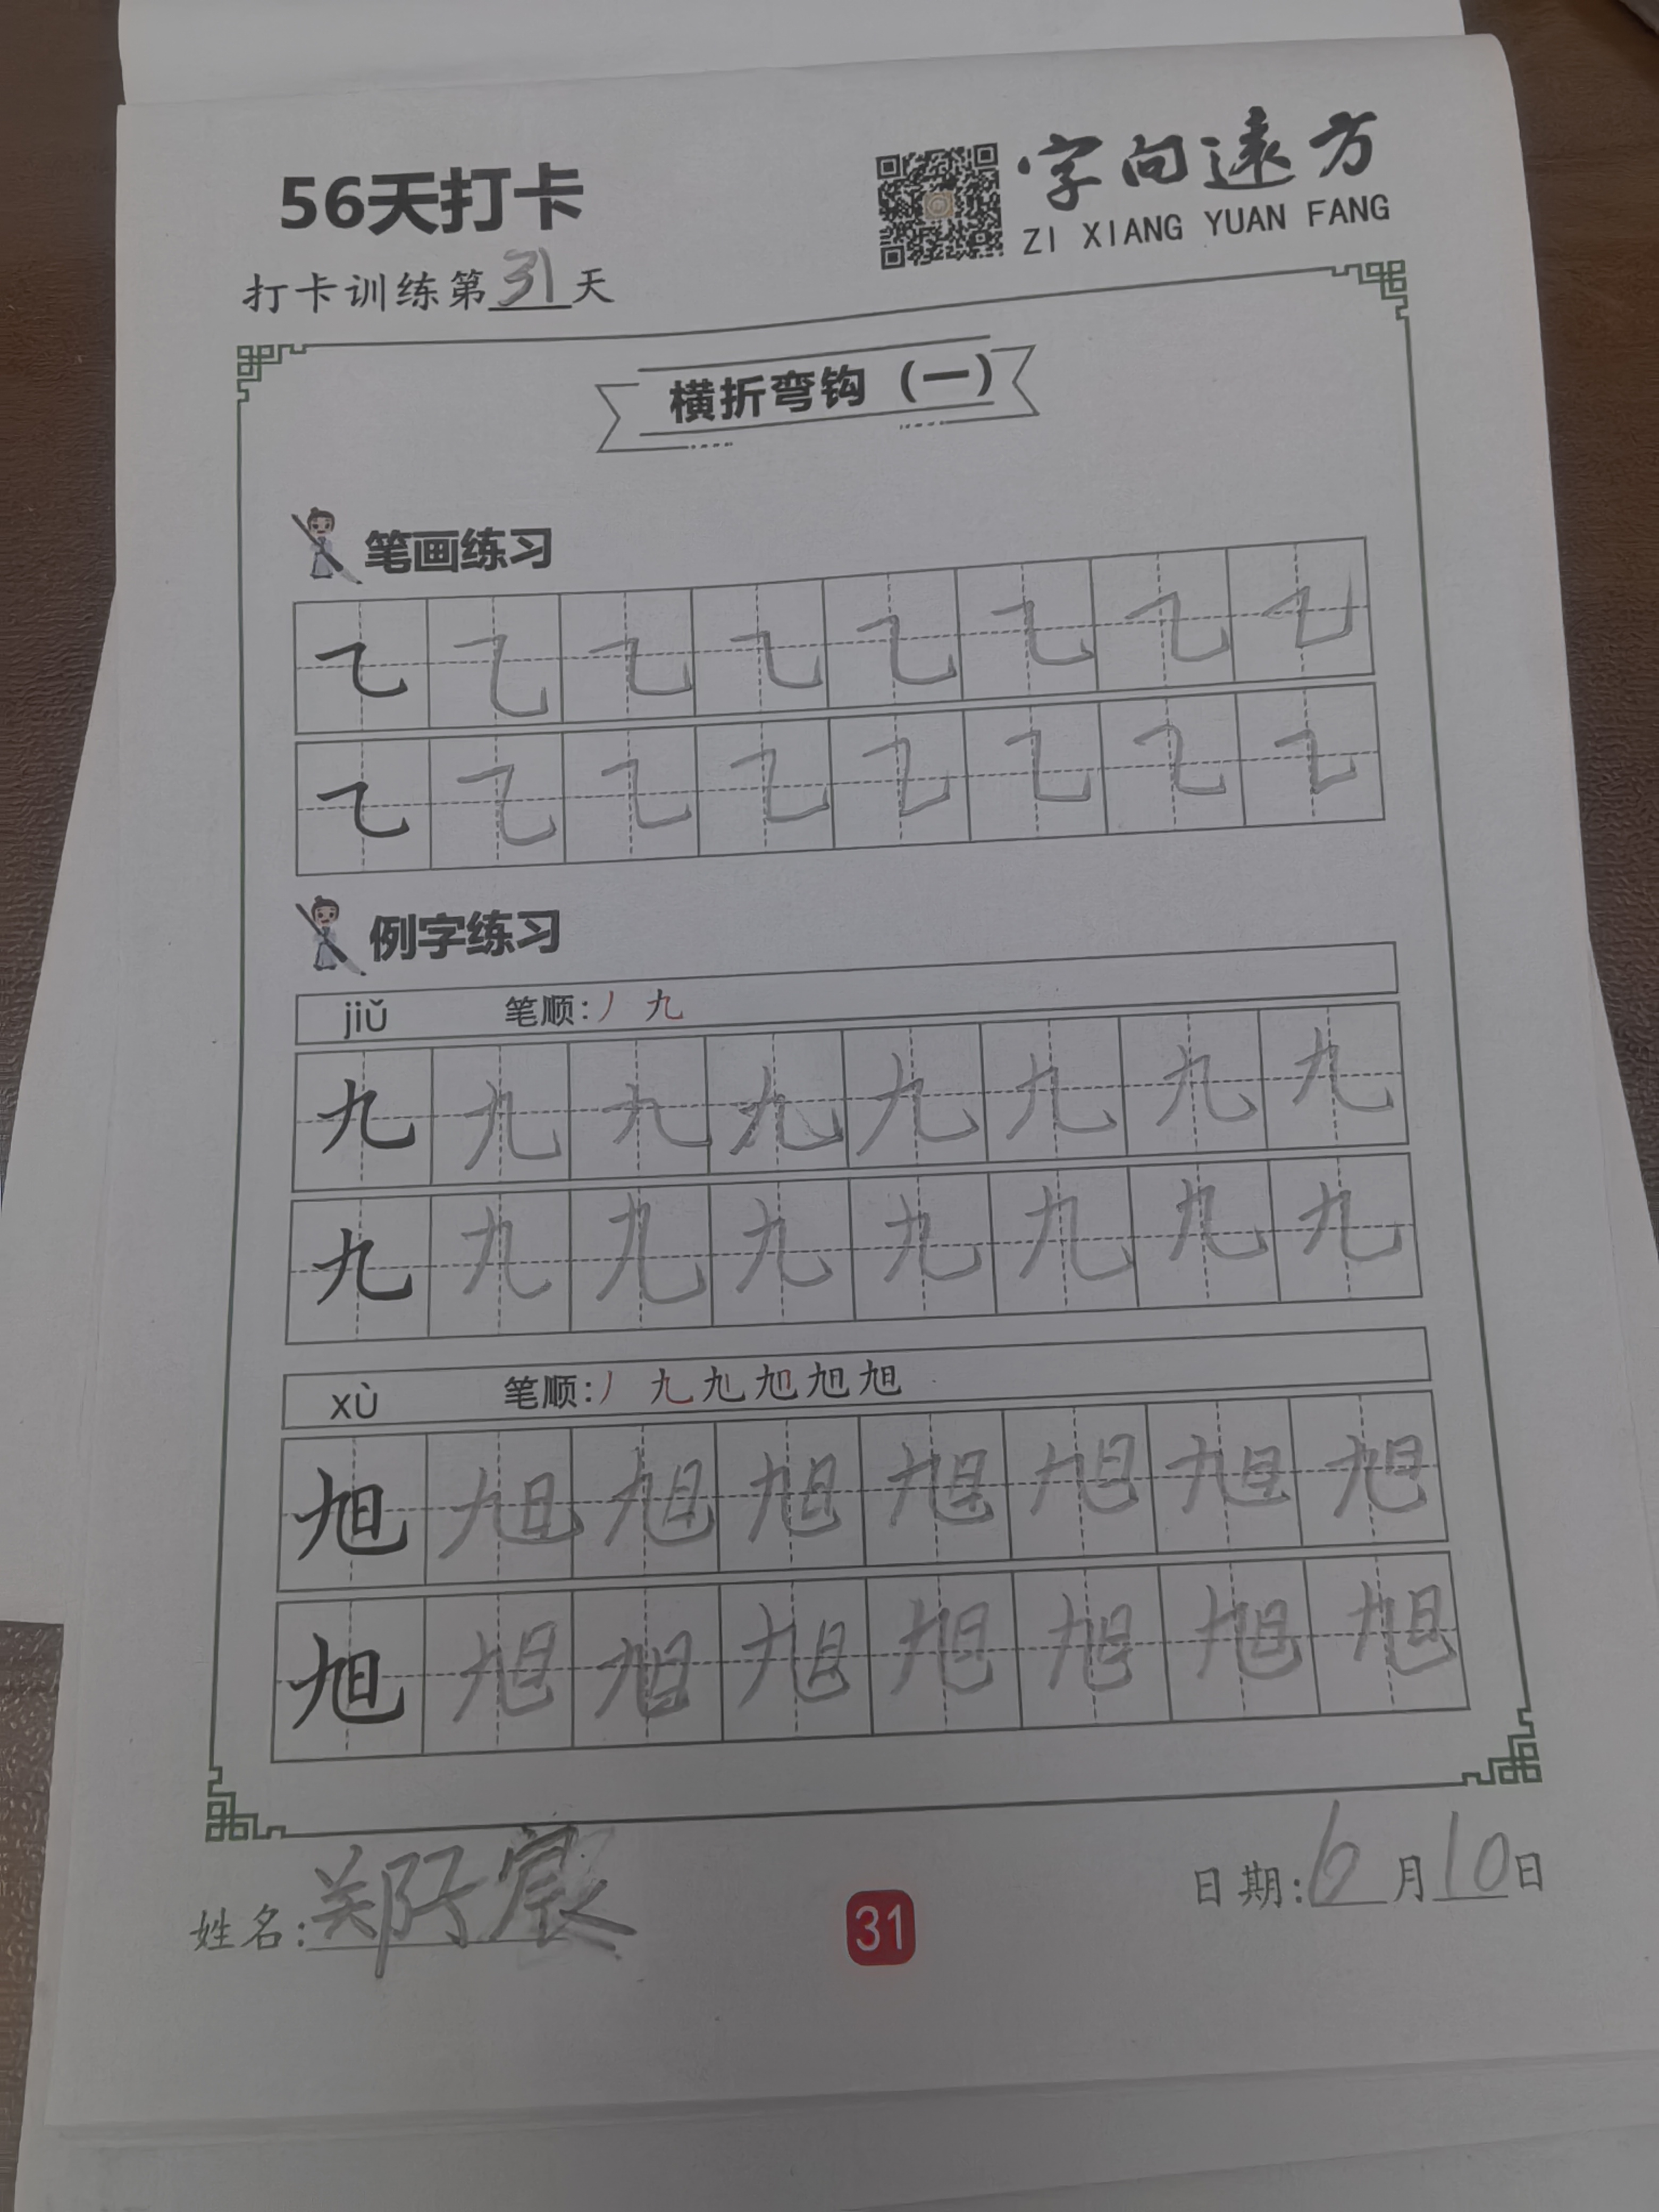 56天打卡
字向远方
ZI XIANG YUAN FANG
打卡训练第31天
横折弯钩（一）
笔画练习
例字练习
jiǔ 笔顺:丿 九
九 九 九 九 九 九 九 九
九 九 九 九 九 九 九 九
xù 笔顺:丿 九 旭 旭
旭 旭 旭 旭 旭 旭 旭 旭
旭 旭 旭 旭 旭 旭 旭 旭
姓名: 郑 宸
31
日期: 6月10日